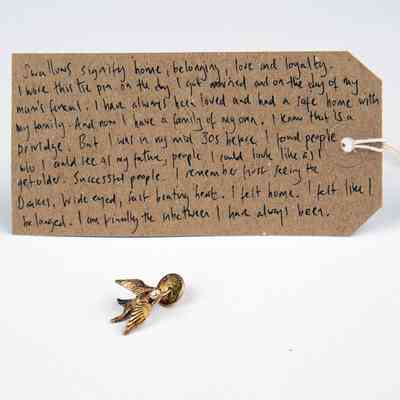 Swallows signify home, belonging, love and loyalty.
I wore this tie pin on the day I got married and on the day of my
mum's funeral. I have always been loved and had a safe home with
my family. And now I have a family of my own. I know that is a
privilidge. But I was in my mid 30s before I found people
who I could see as my future, people I could look like as I
get older. Successful people. I remember first seeing the
Dakes. Wide eyed, fast beating heart. I felt home. I felt like I
belonged. I am finally the inbetween I have always been.